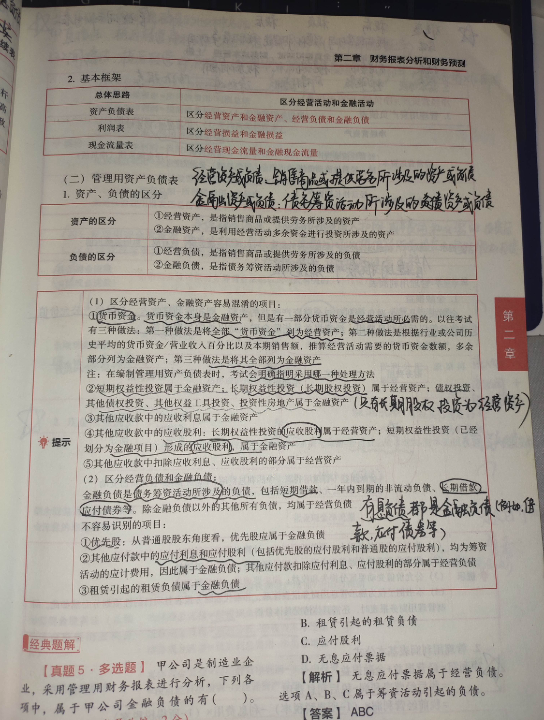 第二章 财务报表分析和财务预测
2. 基本框架
总体思路 区分经营活动和金融活动
资产负债表 区分经营资产和金融资产、经营负债和金融负债
利润表 区分经营损益和金融损益
现金流量表 区分经营现金流量和金融现金流量
(二) 管理用资产负债表
经营资产或负债：销售商品或提供劳务所涉及的资产或负债
1. 资产、负债的区分
金融资产或负债：债务筹资活动所涉及的资产或负债
资产的区分
①经营资产，是指销售商品或提供劳务所涉及的资产
②金融资产，是利用经营活动多余资金进行投资所涉及的资产
负债的区分
①经营负债，是指销售商品或提供劳务所涉及的负债
②金融负债，是指债务筹资活动所涉及的负债
第二章
提示
(1) 区分经营资产、金融资产容易混淆的项目：
①货币资金。货币资金本身是金融资产，但是有一部分货币资金是经营活动所必需的。以往考试
有三种做法：第一种做法是将全部“货币资金”列为经营资产；第二种做法是根据行业或公司历
史平均的货币资金/营业收入百分比以及本期销售额，推算经营活动需要的货币资金数额，多余
部分列为金融资产；第三种做法是将其全部列为金融资产
注：在编制管理用资产负债表时，考试会明确指明采用哪一种处理方法
②短期权益性投资属于金融资产；长期权益性投资（长期股权投资）属于经营资产；债权投资、
其他债权投资、其他权益工具投资、投资性房地产属于金融资产
(只有长期股权投资为经营资产)
③其他应收款中的应收利息属于金融资产
④其他应收款中的应收股利：长期权益性投资的应收股利属于经营资产；短期权益性投资（已经
划分为金融项目）形成的应收股利，属于金融资产
⑤其他应收款中扣除应收利息、应收股利的部分属于经营资产
(2) 区分经营负债和金融负债：
金融负债是债务筹资活动所涉及的负债，包括短期借款、一年内到期的非流动负债、长期借款、
应付债券等。除金融负债以外的其他所有负债，均属于经营负债
有息负债都是金融负债(例如，借
不容易识别的项目：
款，应付债券等)
①优先股：从普通股股东角度看，优先股应属于金融负债
②其他应付款中的应付利息和应付股利（包括优先股的应付股利和普通股的应付股利），均为筹资
活动的应计费用，因此属于金融负债；其他应付款扣除应付利息、应付股利的部分属于经营负债
③租赁引起的租赁负债属于金融负债
经典题解
【真题5·多选题】甲公司是制造业企
业，采用管理用财务报表进行分析，下列各
项中，属于甲公司金融负债的有（ ）。
B. 租赁引起的租赁负债
C. 应付股利
D. 无息应付票据
【解析】 无息应付票据属于经营负债。
选项A、B、C属于筹资活动引起的负债。
【答案】 ABC